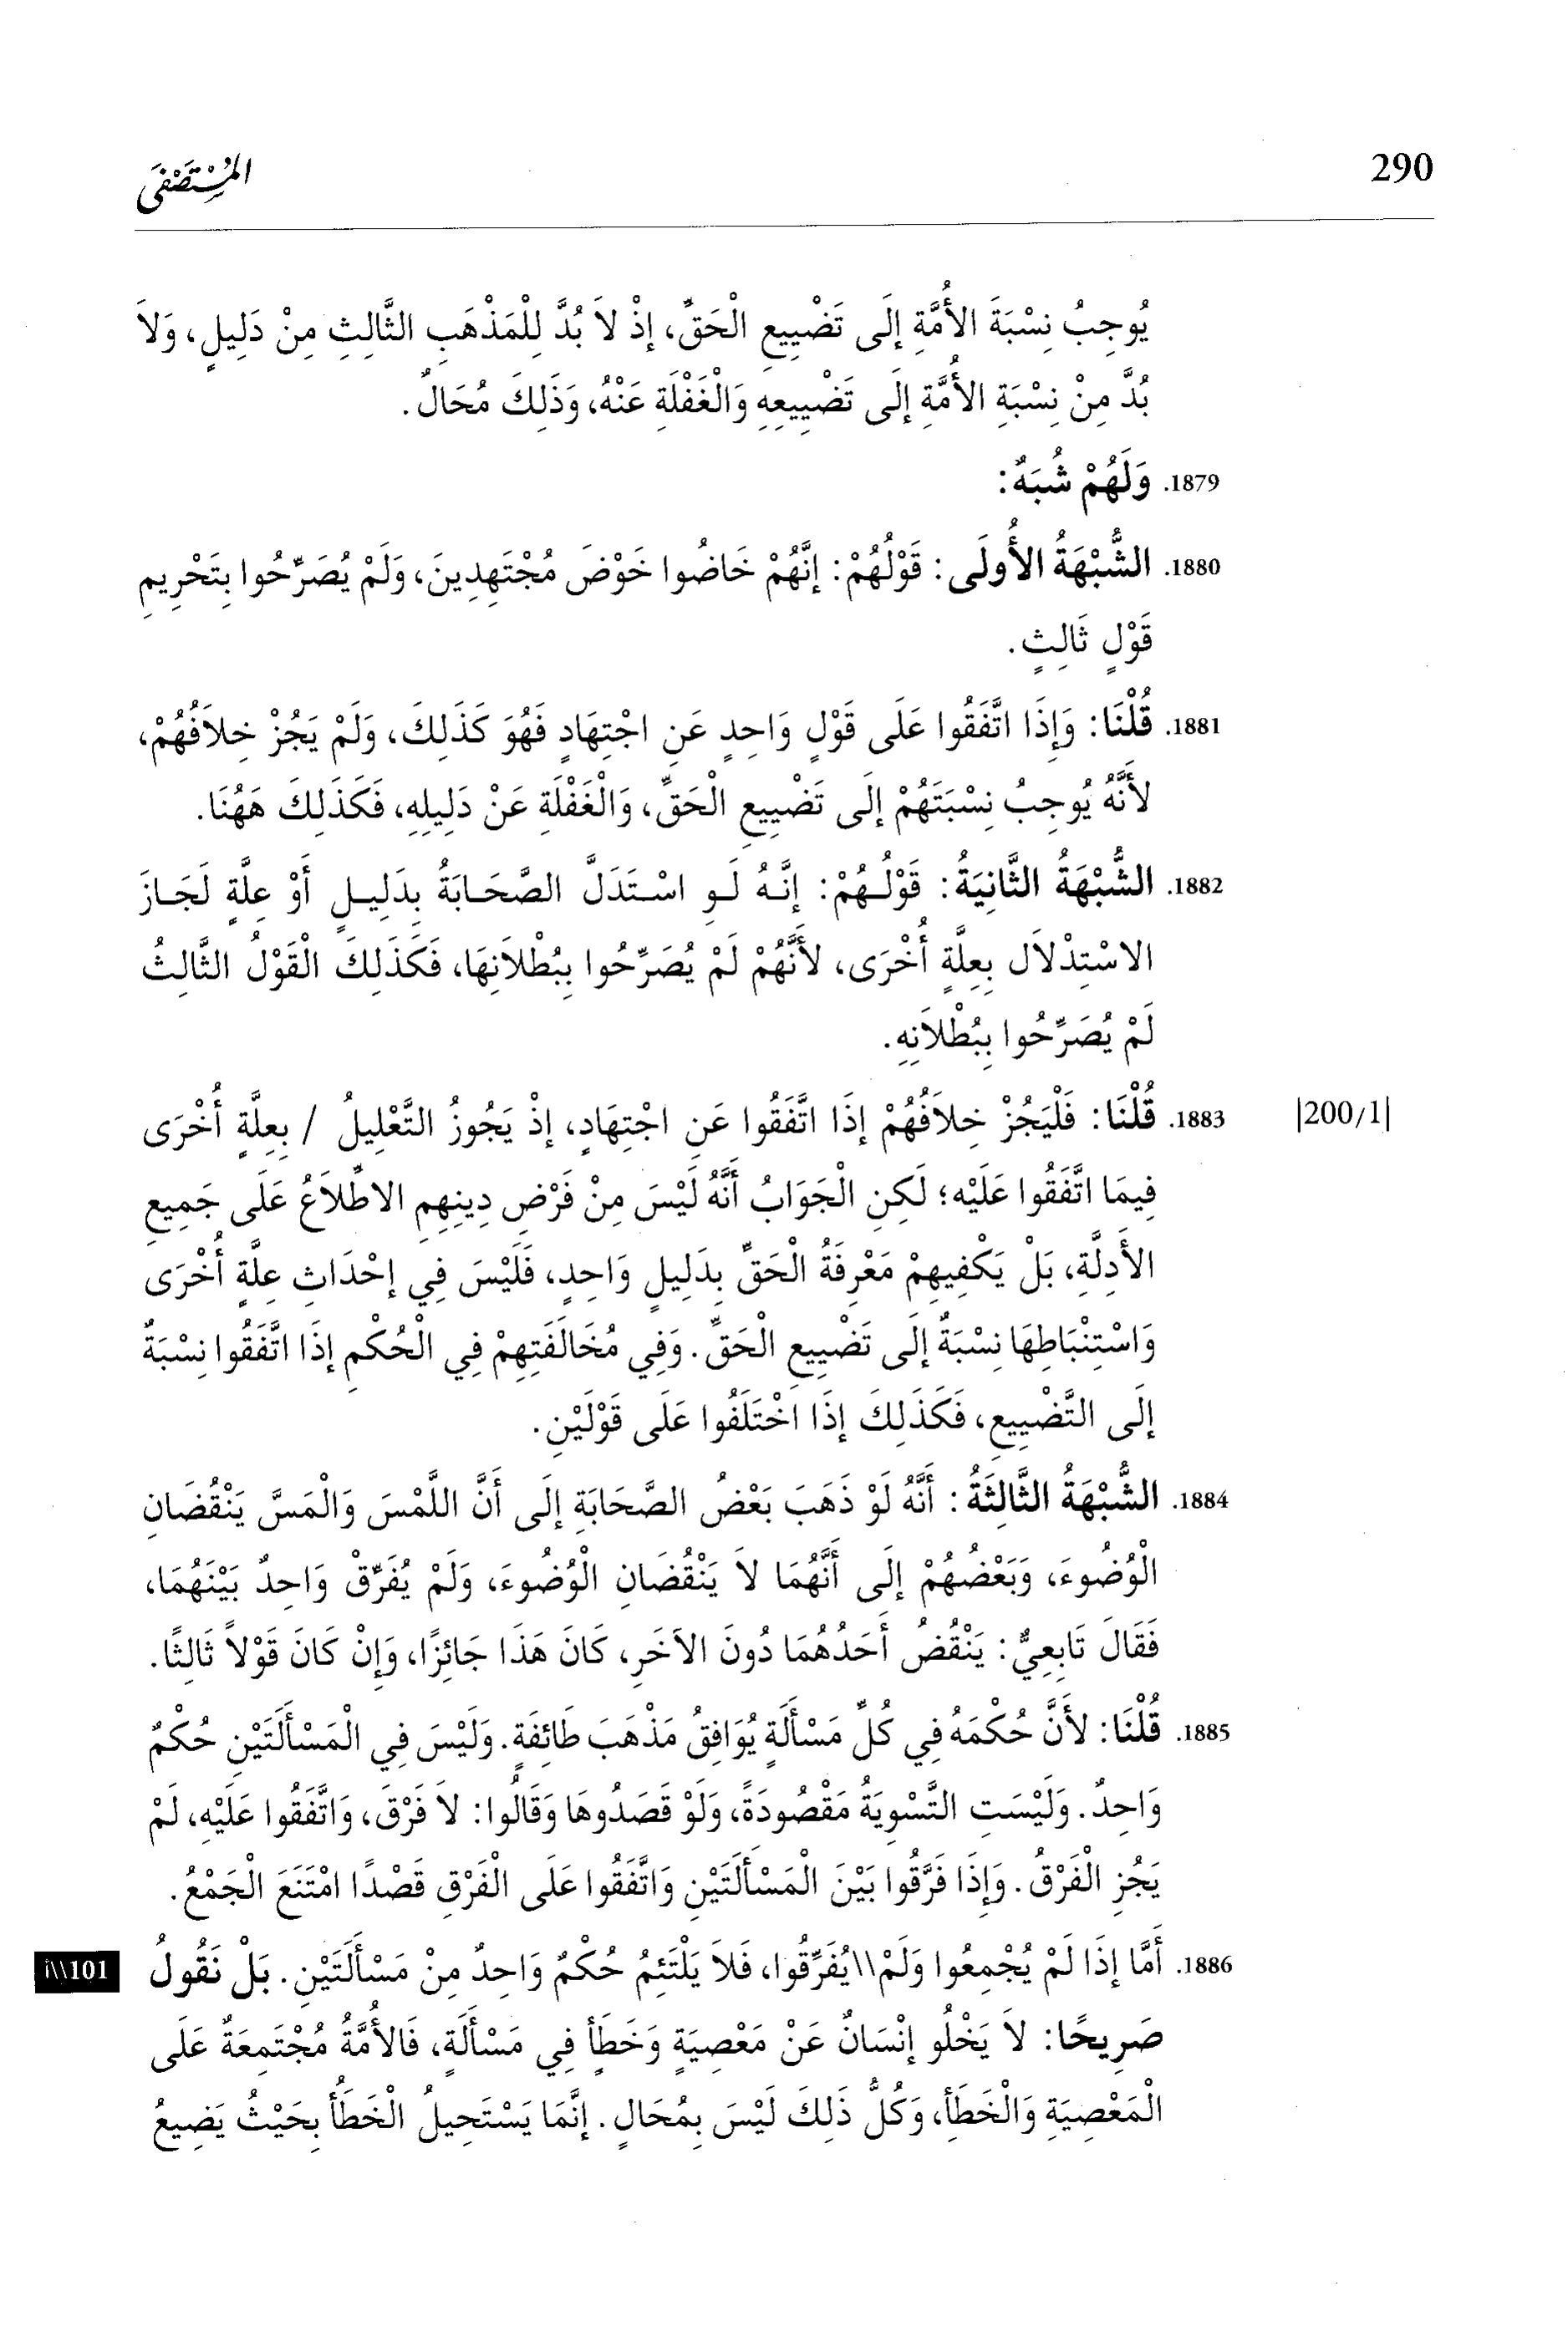 290
المُسْتَصْفَى
يُوجِبُ نِسْبَةَ الأُمَّةِ إِلَى تَضْيِيعِ الْحَقِّ، إِذْ لاَ بُدَّ لِلْمَذْهَبِ الثَّالِثِ مِنْ دَلِيلٍ، وَلاَ
بُدَّ مِنْ نِسْبَةِ الأُمَّةِ إِلَى تَضْيِيعِهِ وَالْغَفْلَةِ عَنْهُ، وَذَلِكَ مُحَالٌ.
1879. وَلَهُمْ شُبَهٌ:
1880. الشُّبْهَةُ الأُولَى: قَوْلُهُمْ: إِنَّهُمْ خَاضُوا خَوْضَ مُجْتَهِدِينَ، وَلَمْ يُصَرِّحُوا بِتَحْرِيمِ
قَوْلٍ ثَالِثٍ.
1881. قُلْنَا: وَإِذَا اتَّفَقُوا عَلَى قَوْلٍ وَاحِدٍ عَنِ اجْتِهَادٍ فَهُوَ كَذَلِكَ، وَلَمْ يَجُزْ خِلاَفُهُمْ،
لأَنَّهُ يُوجِبُ نِسْبَتَهُمْ إِلَى تَضْيِيعِ الْحَقِّ، وَالْغَفْلَةِ عَنْ دَلِيلِهِ، فَكَذَلِكَ هَهُنَا.
1882. الشُّبْهَةُ الثَّانِيَةُ: قَوْلُهُمْ: إِنَّهُ لَوِ اسْتَدَلَّ الصَّحَابَةُ بِدَلِيلٍ أَوْ عِلَّةٍ لَجَازَ
الاسْتِدْلاَل بِعِلَّةٍ أُخْرَى، لأَنَّهُمْ لَمْ يُصَرِّحُوا بِبُطْلاَنِهَا، فَكَذَلِكَ الْقَوْلُ الثَّالِثُ
لَمْ يُصَرِّحُوا بِبُطْلاَنِهِ.
|200/1| 1883. قُلْنَا: فَلْيَجُزْ خِلاَفُهُمْ إِذَا اتَّفَقُوا عَنِ اجْتِهَادٍ، إِذْ يَجُوزُ التَّعْلِيلُ / بِعِلَّةٍ أُخْرَى
فِيمَا اتَّفَقُوا عَلَيْهِ؛ لَكِنِ الْجَوَابُ أَنَّهُ لَيْسَ مِنْ فَرْضِ دِينِهِمِ الاطِّلاَعُ عَلَى جَمِيعِ
الأَدِلَّةِ، بَلْ يَكْفِيهِمْ مَعْرِفَةُ الْحَقِّ بِدَلِيلٍ وَاحِدٍ، فَلَيْسَ فِي إِحْدَاثِ عِلَّةٍ أُخْرَى
وَاسْتِنْبَاطِهَا نِسْبَةٌ إِلَى تَضْيِيعِ الْحَقِّ. وَفِي مُخَالَفَتِهِمْ فِي الْحُكْمِ إِذَا اتَّفَقُوا نِسْبَةٌ
إِلَى التَّضْيِيعِ، فَكَذَلِكَ إِذَا اخْتَلَفُوا عَلَى قَوْلَيْنِ.
1884. الشُّبْهَةُ الثَّالِثَةُ: أَنَّهُ لَوْ ذَهَبَ بَعْضُ الصَّحَابَةِ إِلَى أَنَّ اللَّمْسَ وَالْمَسَّ يَنْقُضَانِ
الْوُضُوءَ، وَبَعْضُهُمْ إِلَى أَنَّهُمَا لاَ يَنْقُضَانِ الْوُضُوءَ، وَلَمْ يُفَرِّقْ وَاحِدٌ بَيْنَهُمَا،
فَقَالَ تَابِعِيٌّ: يَنْقُضُ أَحَدُهُمَا دُونَ الآخَرِ، كَانَ هَذَا جَائِزًا، وَإِنْ كَانَ قَوْلاً ثَالِثًا.
1885. قُلْنَا: لأَنَّ حُكْمَهُ فِي كُلِّ مَسْأَلَةٍ يُوَافِقُ مَذْهَبَ طَائِفَةٍ. وَلَيْسَ فِي الْمَسْأَلَتَيْنِ حُكْمٌ
وَاحِدٌ. وَلَيْسَتِ التَّسْوِيَةُ مَقْصُودَةً، وَلَوْ قَصَدُوهَا وَقَالُوا: لاَ فَرْقَ، وَاتَّفَقُوا عَلَيْهِ، لَمْ
يَجُزِ الْفَرْقُ. وَإِذَا فَرَّقُوا بَيْنَ الْمَسْأَلَتَيْنِ وَاتَّفَقُوا عَلَى الْفَرْقِ قَصْدًا امْتَنَعَ الْجَمْعُ.
1886. أَمَّا إِذَا لَمْ يُجْمِعُوا وَلَمْ\\يُفَرِّقُوا، فَلاَ يَلْتَئِمُ حُكْمٌ وَاحِدٌ مِنْ مَسْأَلَتَيْنِ. بَلْ نَقُولُ 101\\أ
صَرِيحًا: لاَ يَخْلُو إِنْسَانٌ عَنْ مَعْصِيَةٍ وَخَطَأٍ فِي مَسْأَلَةٍ، فَالأُمَّةُ مُجْتَمِعَةٌ عَلَى
الْمَعْصِيَةِ وَالْخَطَأِ، وَكُلُّ ذَلِكَ لَيْسَ بِمُحَالٍ. إِنَّمَا يَسْتَحِيلُ الْخَطَأُ بِحَيْثُ يَضِيعُ